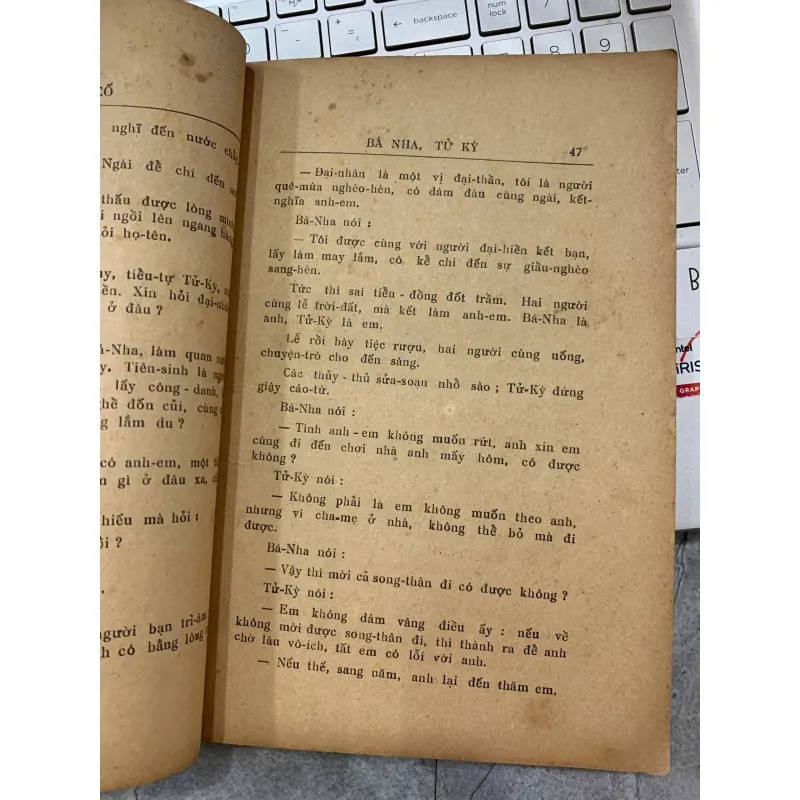 CỐ
nghĩ đến nước chảy
Ngài để chí đến
thấu được lòng mình
ngồi lên ngang hàng
hỏi họ-tên.
tiều-tự Tử-Kỳ,
Xin hỏi đại-nhân
ở đâu ?
Bá-Nha, làm quan
Tiên-sinh là
lấy công-danh,
nghề đốn củi, cùng
lắm du ?
có anh-em, một
gì ở đâu xa,
hiếu mà hỏi :
?
người bạn tri-âm
có bằng lòng
BÁ NHA, TỬ KỲ 47
— Đại-nhân là một vị đại-thần, tôi là người
quê-mùa nghèo-hèn, có dám đâu cùng ngài, kết-
nghĩa anh-em.
Bá-Nha nói :
— Tôi được cùng với người đại-hiền kết bạn,
lấy làm may lắm, có kể chi đến sự giầu-nghèo
sang-hèn.
Tức thì sai tiểu-đồng đốt trầm. Hai người
cùng lễ trời-đất, mà kết làm anh-em. Bá-Nha là
anh, Tử-Kỳ là em.
Lễ rồi bày tiệc rượu, hai người cùng uống,
chuyện-trò cho đến sáng.
Các thủy-thủ sửa-soạn nhổ sào ; Tử-Kỳ đứng
giậy cáo-từ.
Bá-Nha nói :
— Tình anh-em không muốn rứt, anh xin em
cùng đi đến chơi nhà anh mấy hôm, có được
không ?
Tử-Kỳ nói :
— Không phải là em không muốn theo anh,
nhưng vì cha-mẹ ở nhà, không thể bỏ mà đi
được.
Bá-Nha nói :
— Vậy thì mời cả song-thân đi có được không ?
Tử-Kỳ nói :
— Em không dám vâng điều ấy : nếu về
không mời được song-thân đi, thì thành ra để anh
chờ lâu vô-ích, tất em có lỗi với anh.
— Nếu thế, sang năm, anh lại đến thăm em.
backspace
num
lock
7
8
9
intel
iRIS
GRAP